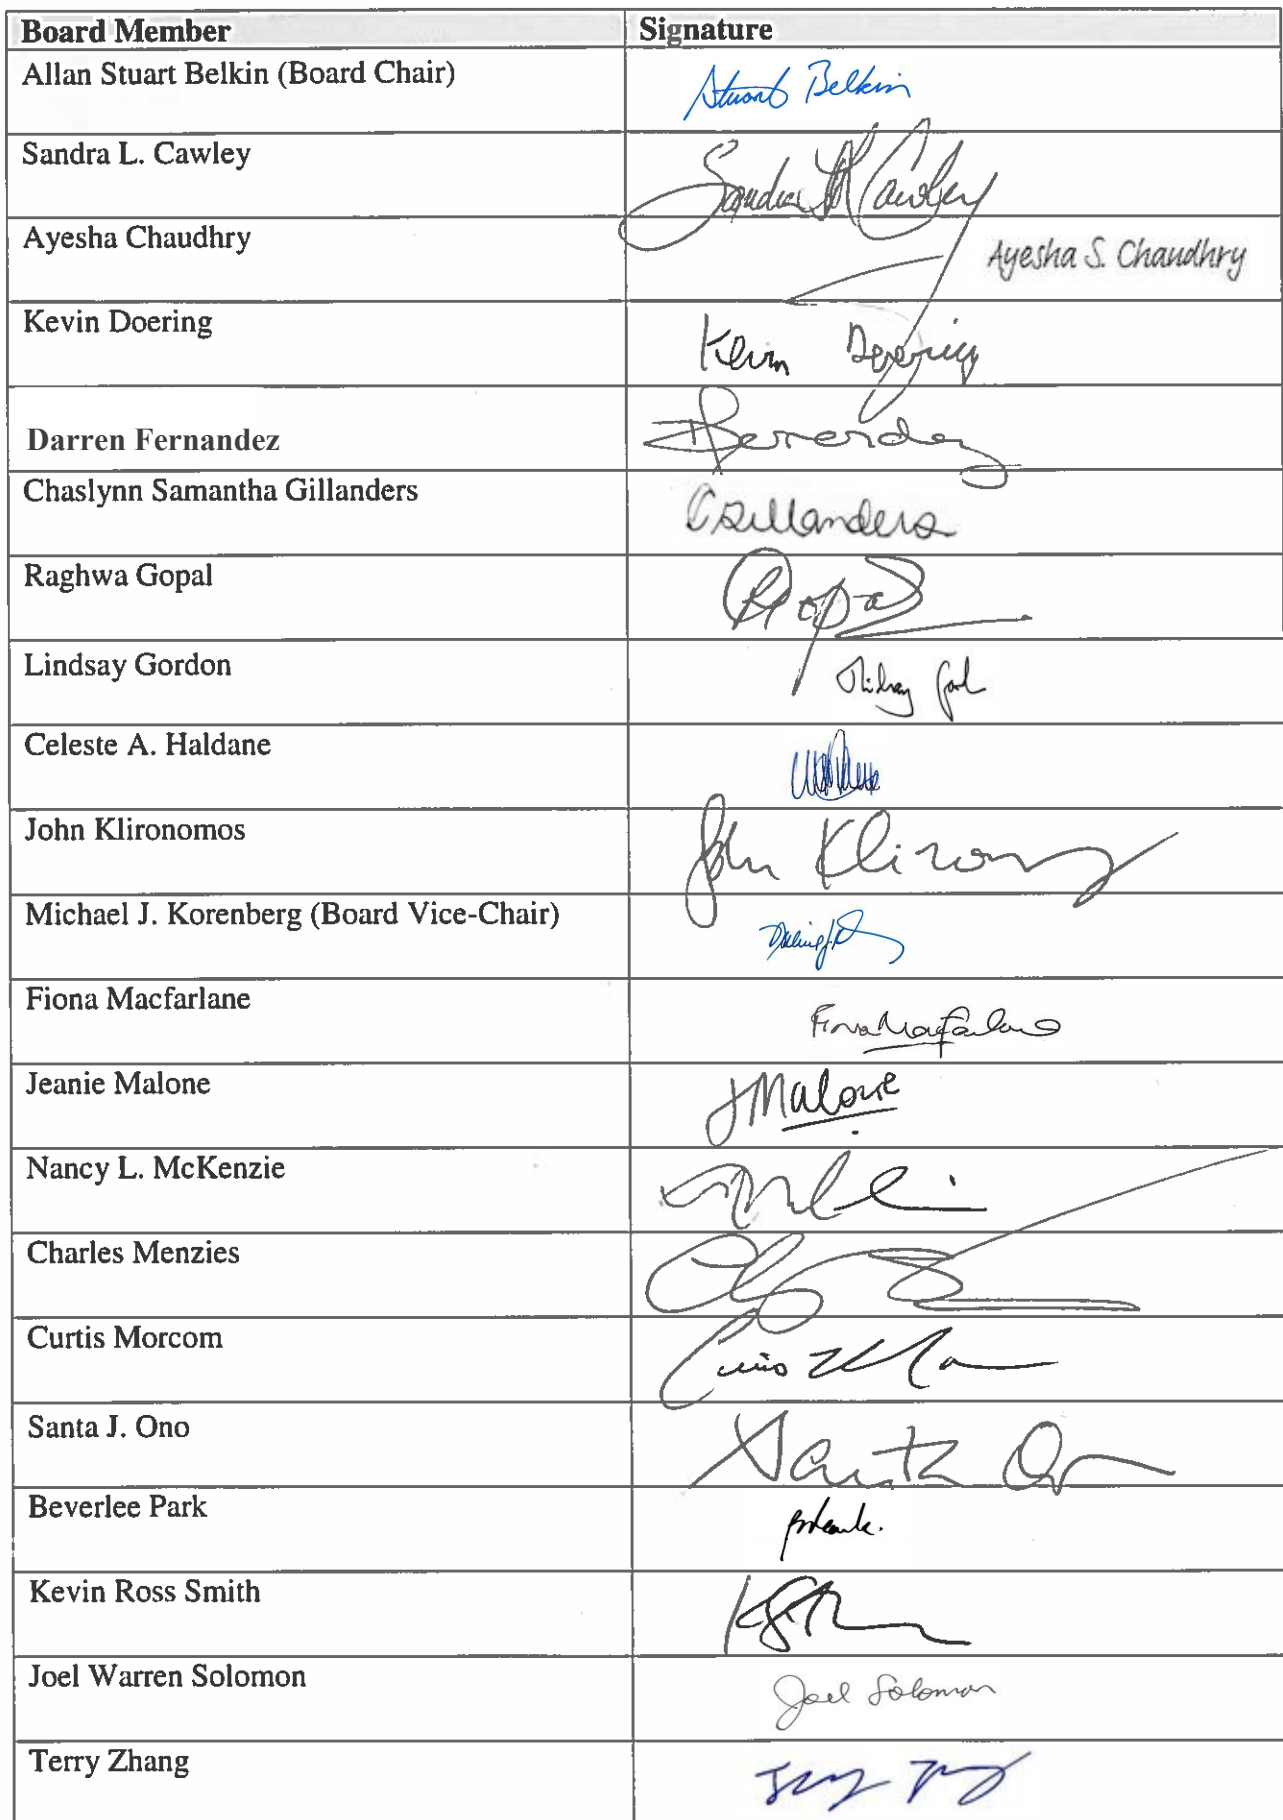 Board Member Signature
Allan Stuart Belkin (Board Chair) Stuart Belkin
Sandra L. Cawley Sandra Cawley
Ayesha Chaudhry Ayesha S. Chaudhry
Kevin Doering Kevin Doering
Darren Fernandez
Chaslynn Samantha Gillanders CSGillanders
Raghwa Gopal RGopal
Lindsay Gordon
Celeste A. Haldane
John Klironomos John
Michael J. Korenberg (Board Vice-Chair)
Fiona Macfarlane Fiona Macfarlane
Jeanie Malone JMalone
Nancy L. McKenzie
Charles Menzies
Curtis Morcom
Santa J. Ono Santa Ono
Beverlee Park
Kevin Ross Smith
Joel Warren Solomon Joel Solomon
Terry Zhang